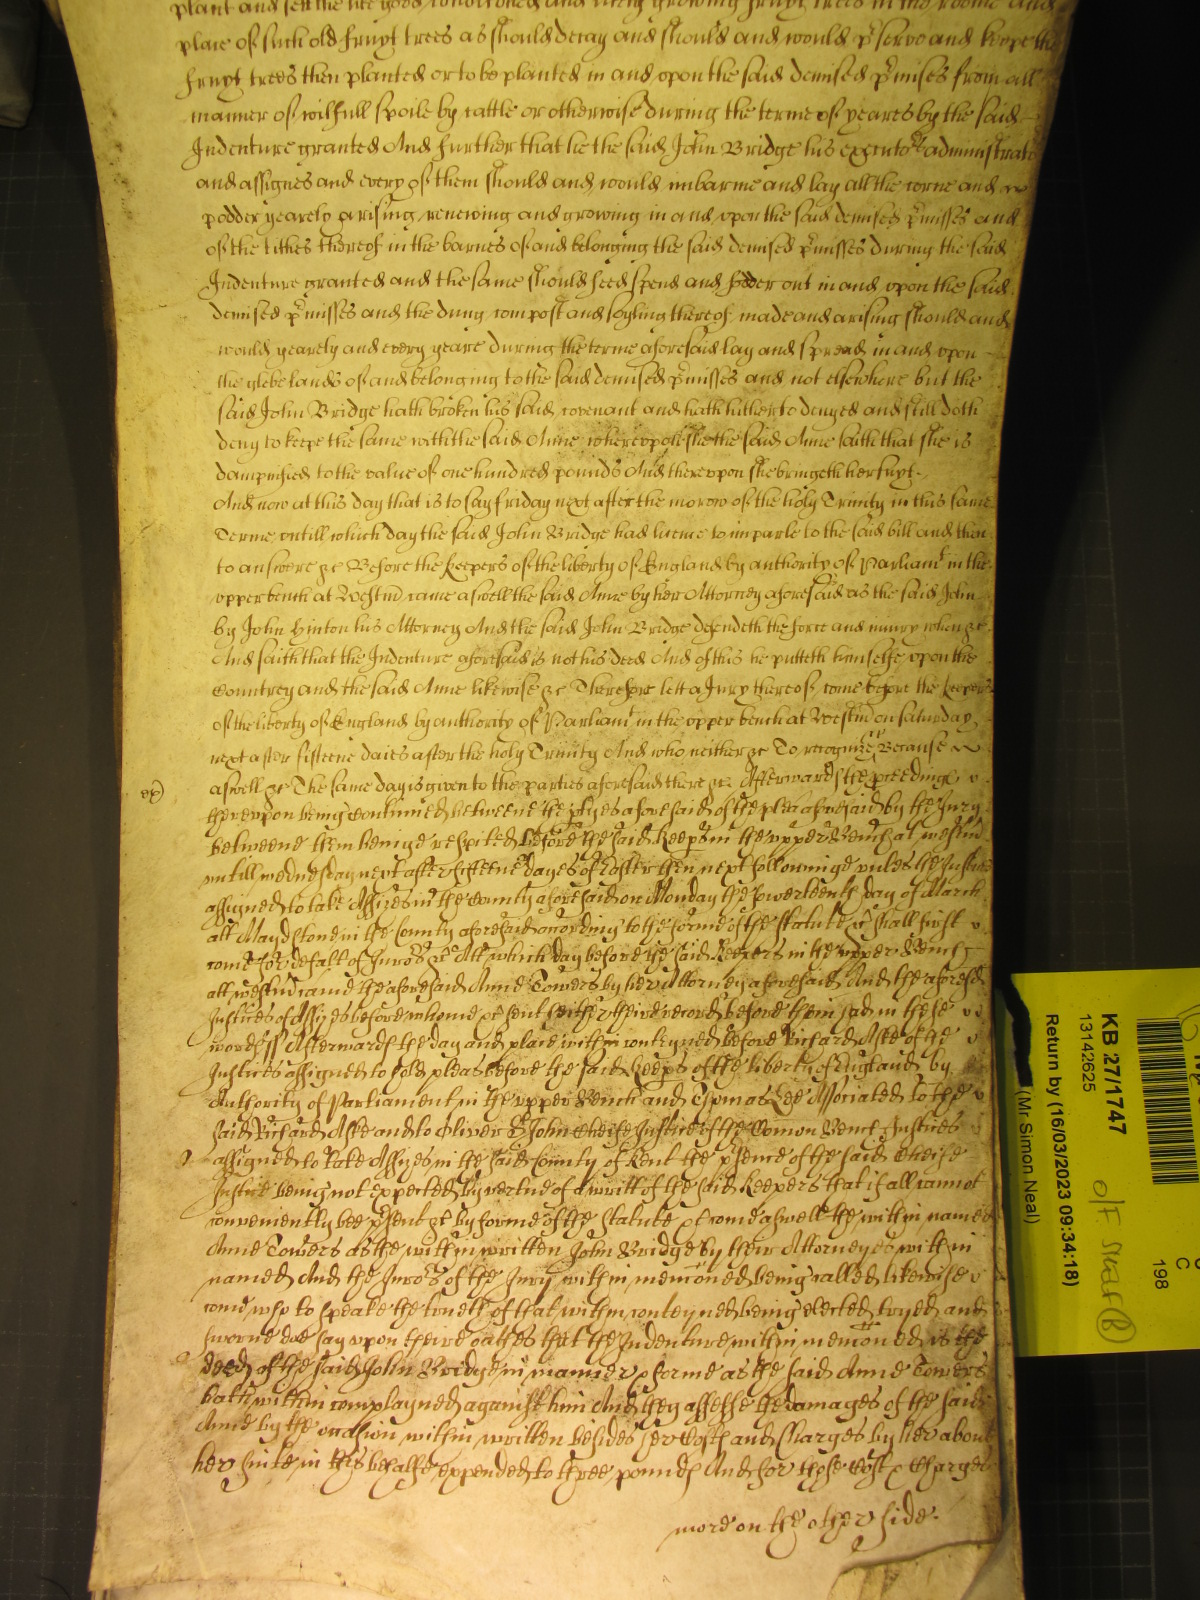 plant and sett the like good conditioned and likely growing fruyt trees in the roome and
place of such old fruyt trees as should decay and should and would p̱serve and keepe the
fruyt trees then planted or to be planted in and vpon the said demised p̱misses from all
manner of wilfull spoile by cattle or otherwise during the terme of yeares by the said
Indenture granted And further that he the said John Bridge his executors administrato
and assignes and every of them should and would imbarne and lay all the corne and
podder yearely arising renewing and growing in and vpon the said demised p̱misses and
of the tithes thereof in the barnes of and belonging the said demised p̱misses during the said
Indenture granted and the same should feed spend and fodder out in and vpon the said
demised p̱misses and the dung compost and soyling thereof made and arising should and
would yearely and every yeare during the terme aforesaid lay and spread in and vpon
the glebe lands of and belonging to the said demised p̱misses and not elsewhere but the
said John Bridge hath broken his said covenant and hath hitherto denyed and still doth
deny to keepe the same with the said Anne wherevpon she the said Anne saith that she is
dampnified to the value of one hundred pounds And therevpon she bringeth her suyt
And now at this day that is to say friday next after the morow of the holy Trinity in this same
Terme vntill which day the said John Bridge had licence to imparle to the said bill and then
to answere &c Before the keepers of the liberty of England by authority of Parliamt in the
vpper bench at Westm̃ came aswell the said Anne by her Attorney aforesaid as the said John
by John Hinton his Attorney And the said John Bridge defendeth the force and iniury when &c
And saith that the Indenture aforesaid is not his deed And of this he putteth himselfe vpon the
Countrey and the said Anne likewise &c Therefore lett a Jury thereof come before the keepers
of the liberty of England by authority of Parliamt in the vpper bench at Westm̃ on Saturday
next after fifteene daies after the holy Trinity And who neither &c To recognize &c Because
aswell &c The same day is given to the parties aforesaid there &c Afterwards the p̱ceedings
therevpon being continued betweene the p̱tyes aforesaid of the plea aforesaid by the Jury
betweene them beinge respited before the said Keep̱s in the vpper Bench at Westm̃
vntill wednesday next after fifteene dayes of Easter then next followinge vnles the Justices
assigned to take Assizes in the County aforesaid on Monday the day of March
att Maydstone in the County aforesaid according to the forme of the statute &c shall first
come for default of Juro͠s &c Att which day before the said Keepers in the vpper Bench
att westm̃ came the aforesaid Anne Towers by her Attorney aforesaid And the aforesd
Justices of Assizes before whome &c sent hither theire record before them had in these
words ss Afterwards the day and place within conteyned before Richard Aske of the
Justices assigned to hold pleas before the said Keep̱s of the liberty of England by
Authority of Parliament in the vpper Bench and Thomas Lee Associated to the
said Richard Aske and to Oliver St John Cheife Justice of the Comon Bench Justices
assigned to take Assizes in the said County of Kent the p̱sence of the said Cheife
Justice being not expected by vertue of a writt of the said Keepers that if all cannot
conveniently bee p̱sent &c by forme of the Statute &c come aswell the within named
Anne Towers as the within written John Bridge by their Attorneyes within
named And the Juro͠s of the Jury within menc̃oned being called likewise
come who to speake the trueth of that within conteyned being elected tryed and
sworne doe say vpon theire oathes that the Indenture within menc̃oned is the
deed of the said John Bridge in manner & forme as the said Anne Towers
hath within complayned against him And they assesse the damages of the said
Anne by the occasion within written besides her Costs and Charges by her about
her suite in this behalfe expended to three pounds And for those Costs & Charges
more on the other side.
KB 27/1747
13142625
Return by (16/03/2023 09:34:18)
(Mr Simon Neal)
C
198